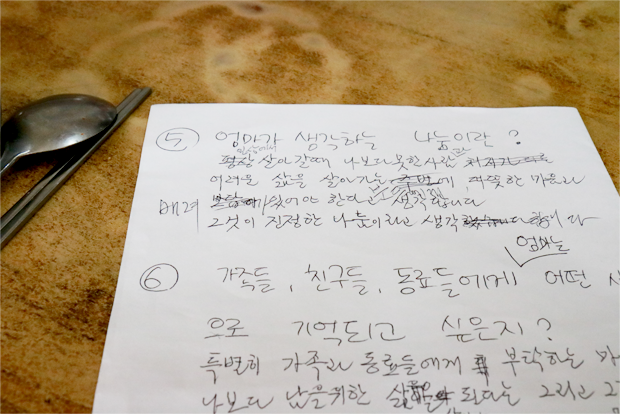 ⑤ 엄마가 생각하는 나눔이란?
평상 살아갈때 나보다 못한사람
어려운 삶을 살아가는 에, 따뜻한 마음과
배려 가 있어야 한다고 생각 합니다
그것이 진정한 나눔이라고 생각 합니다
엄마는
⑥ 가족들, 친구들, 동료들에게 어떤 사
으로 기억되고 싶은지?
특별히 가족과 동료들에게 부탁하는
나보다 남을위한 된다는 그리고